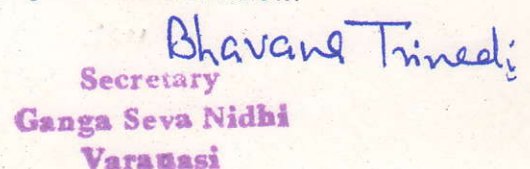 Bhavana Trivedi
Secretary
Ganga Seva Nidhi
Varanasi